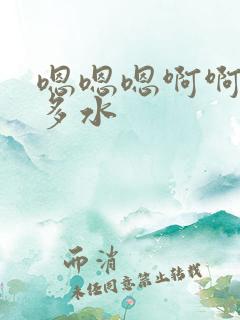 嗯嗯嗯啊啊
多水
而消
未经同意禁止转载